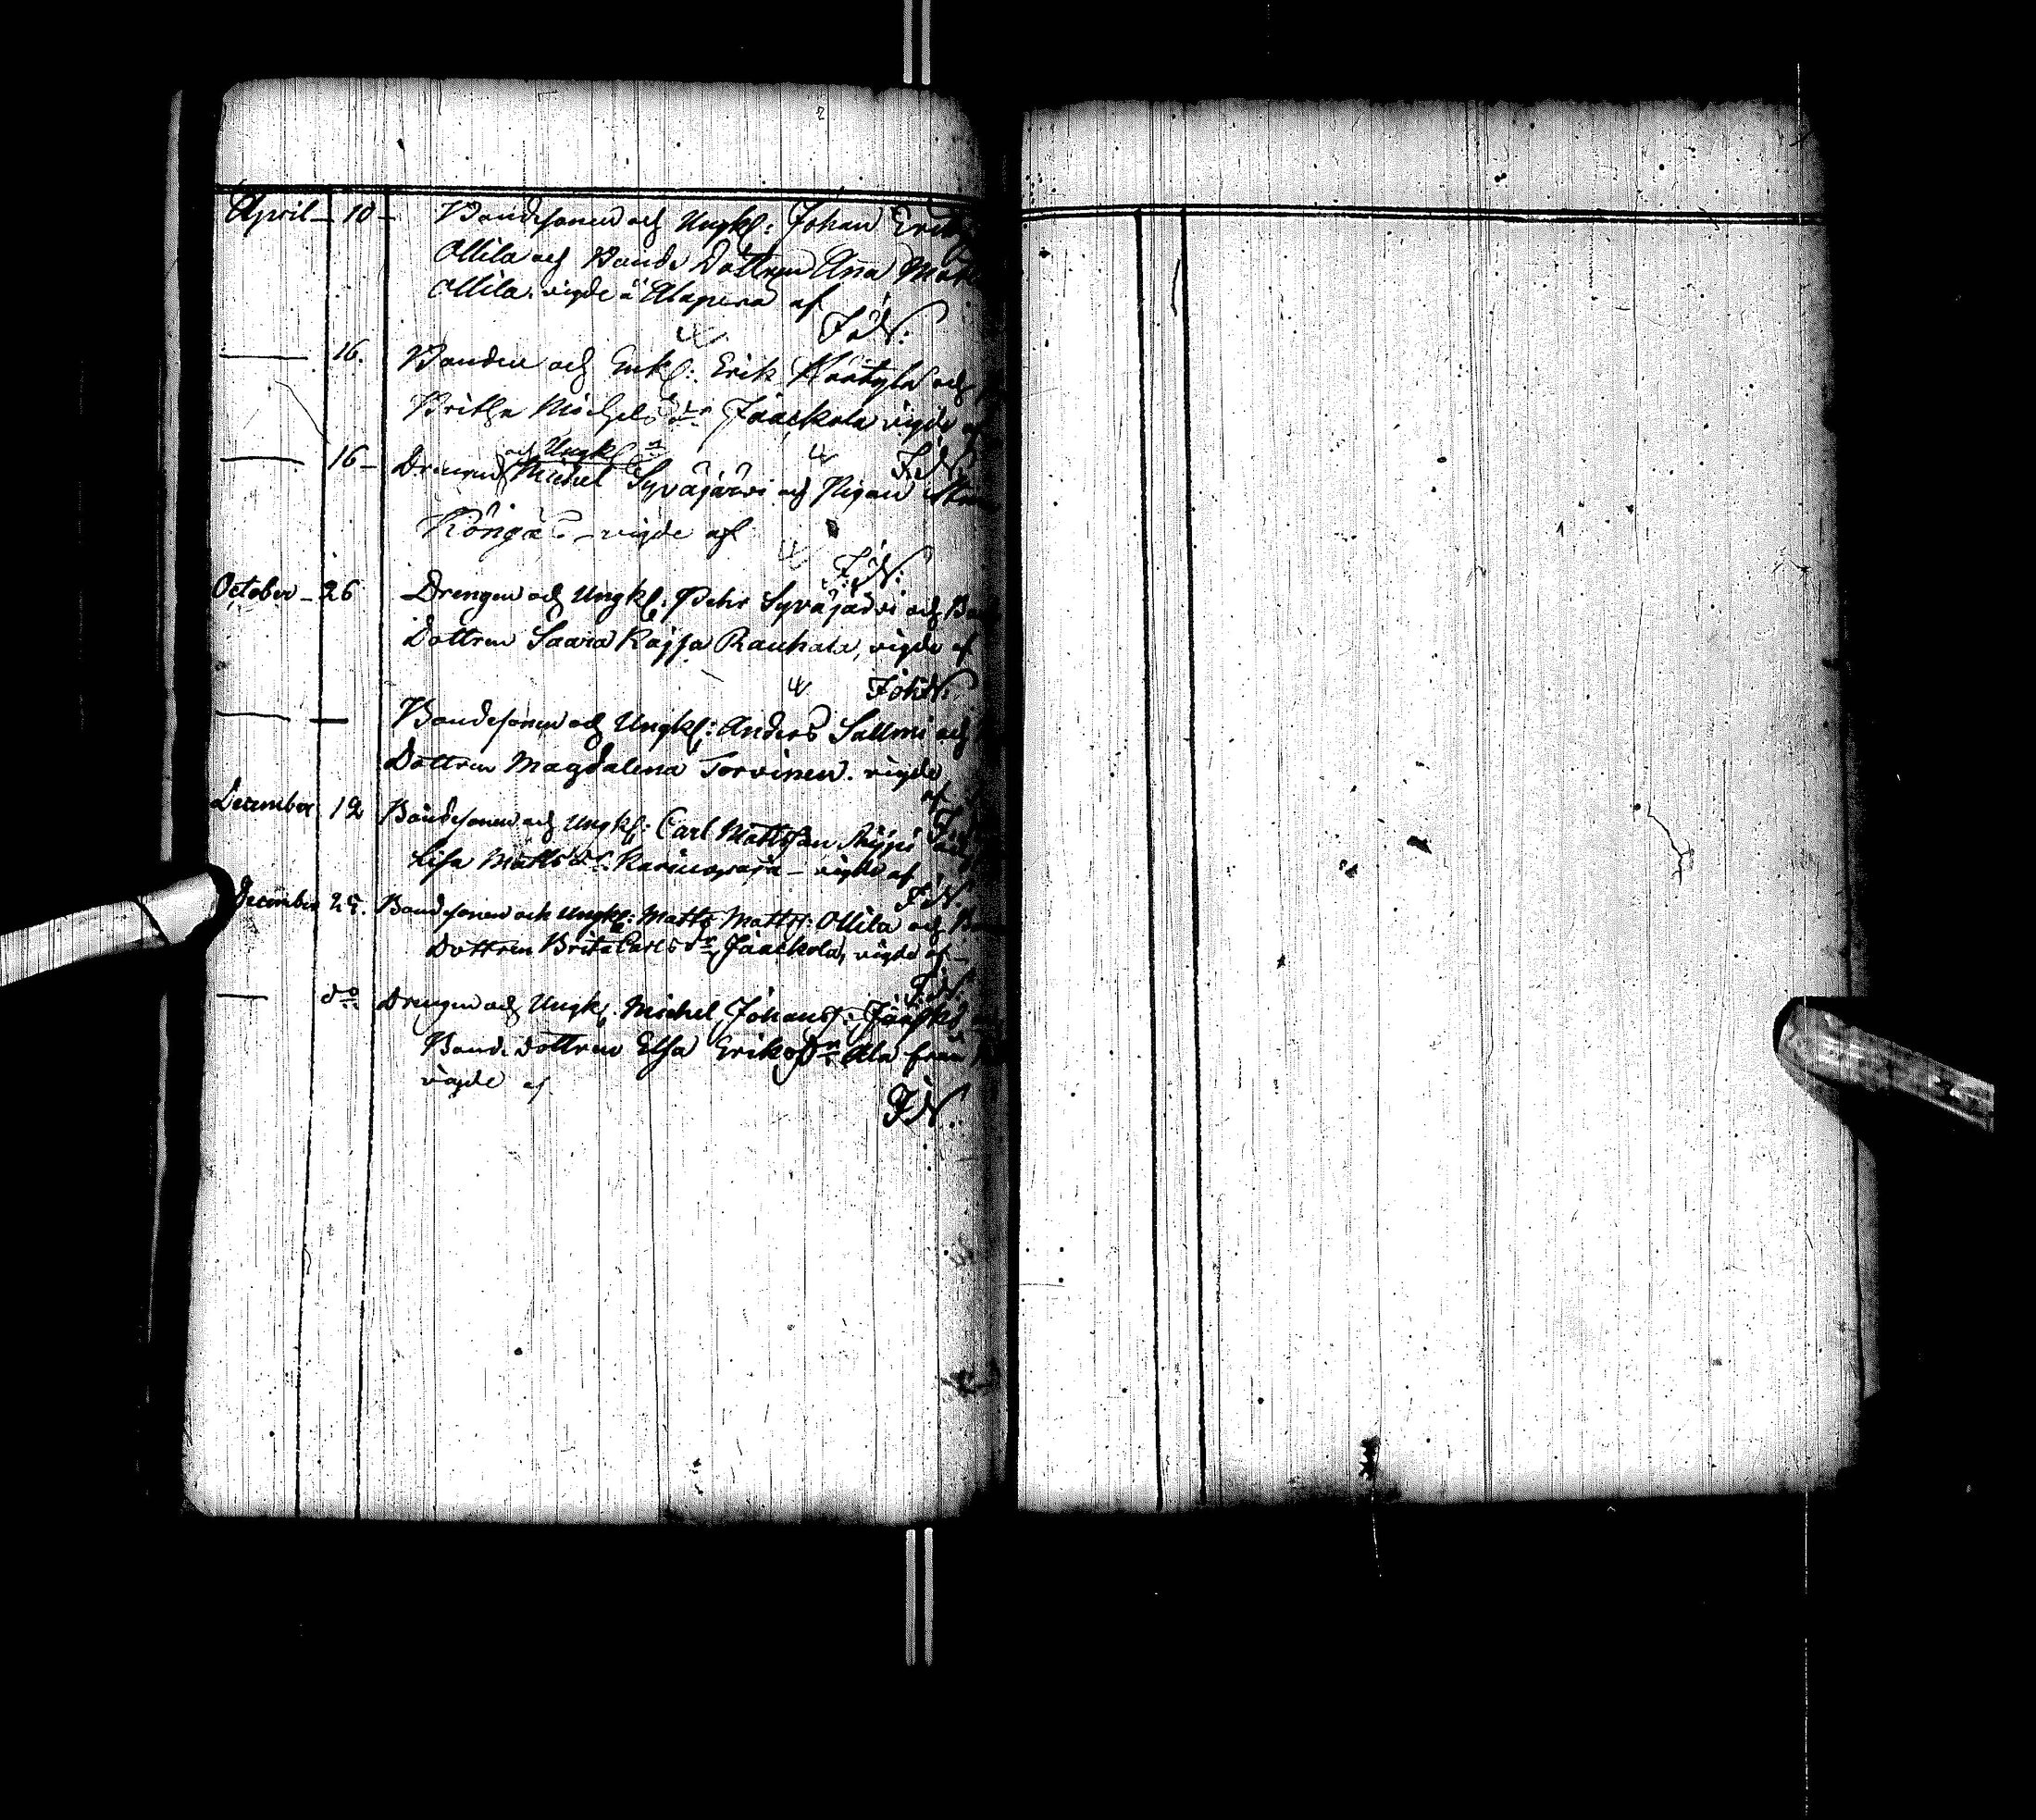 April – 10 – Bondesonen och Ungkl: Johan Eriks
Ollila och Bonde Dottren Ana
Ollila. vigde i Alaperä af
J:W:
16. Bonden och Enkl: Erik och
Britha Michelsdr Jaackola vigde af
och Ungkl
J:W:
16 – Drengen Michel Syväjärvi och Pigan
Köngäs – vigde af
J:W:
October – 26 Drengen och Ungkl. Pehr Syväjärvi och
Dottren Saara Kajsa Rauhala, vigde af
Joh:W:
Bondesonen och Ungkl: Anders Sallmi och
Dottren Magdalena Torvinen. vigde
af
December 12 Bondesonen och Ungkl: Carl Mattsson
Lisa Matts dr. – vigde af
J:W:
December 25. Bondesonen och Ungkl: Matts Matts: Ollila och
Dottren Brita Carlsdr Jaackola, vigde af –
J:W:
do Drengen och Ungk. Michel Johans:
Bonde dottren Elsa Eriksdr Ala från
vigde af
J:W.